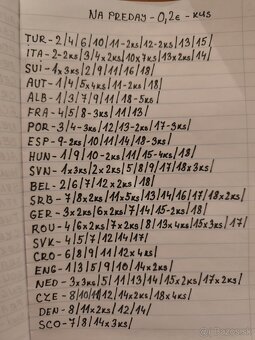 NA PREDAJ - 0,2€ - KUS
TUR - 2/4/6/10/11-2KS/12-2KS/13/15/
ITA - 2-2KS/3/4x2KS/10x7KS/13x2KS/14/
SUI - 1x3KS/2/9/11/16/18/
AUT - 1/4/5x4KS/11-2KS/18/
ALB - 1/3/7/9/11/18-5KS
FRA - 4/5/8-3KS/11/13/
POR - 3/4-3KS/12/13-2KS/17-3KS/
ESP - 9-2KS/10/11/14/18-3KS/
HUN - 1/9/10-2KS/11/15-4KS/18/
SVN - 1x3KS/2x2KS/5/8/9/17/18x3KS/
BEL - 2/6/7/12x2KS/18/
SRB - 7/8x2KS/11x5KS/13/14/16/17/18x2KS/
GER - 3x2KS/6x2KS/7/14/15-2KS/18/
ROU - 4/6x2KS/7x2KS/8/13x4KS/15x3KS/17/
SVK - 4/5/7/12/14/17/
CRO - 6/8/9/11/12x4KS/
ENG - 1/3/5/9/10/14x2KS/
NED - 3x3KS/5/11/13/14/15x2KS/17x2KS/
CZE - 8/10/11/12/14x2KS/18x4KS/
DEN - 8/11x2KS/12/14/
SCO - 7/8/14x3KS/